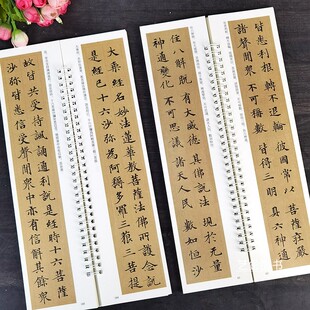 皆悉利根 轉不退輪 彼國常以 菩薩莊嚴
諸聲聞衆 不可稱數 皆得三明 具六神通
住八解脫 有大威德 其佛說法 現於无量
神通變化 不可思議 諸天人民 數如恒沙
大乘經名妙法蓮華教菩薩法佛所護念說
是經已十六沙弥為阿耨多羅三藐三菩提
故皆共受持諷誦通利說是經時十六菩薩
沙弥皆悉信受聲聞衆中亦有信解其餘衆